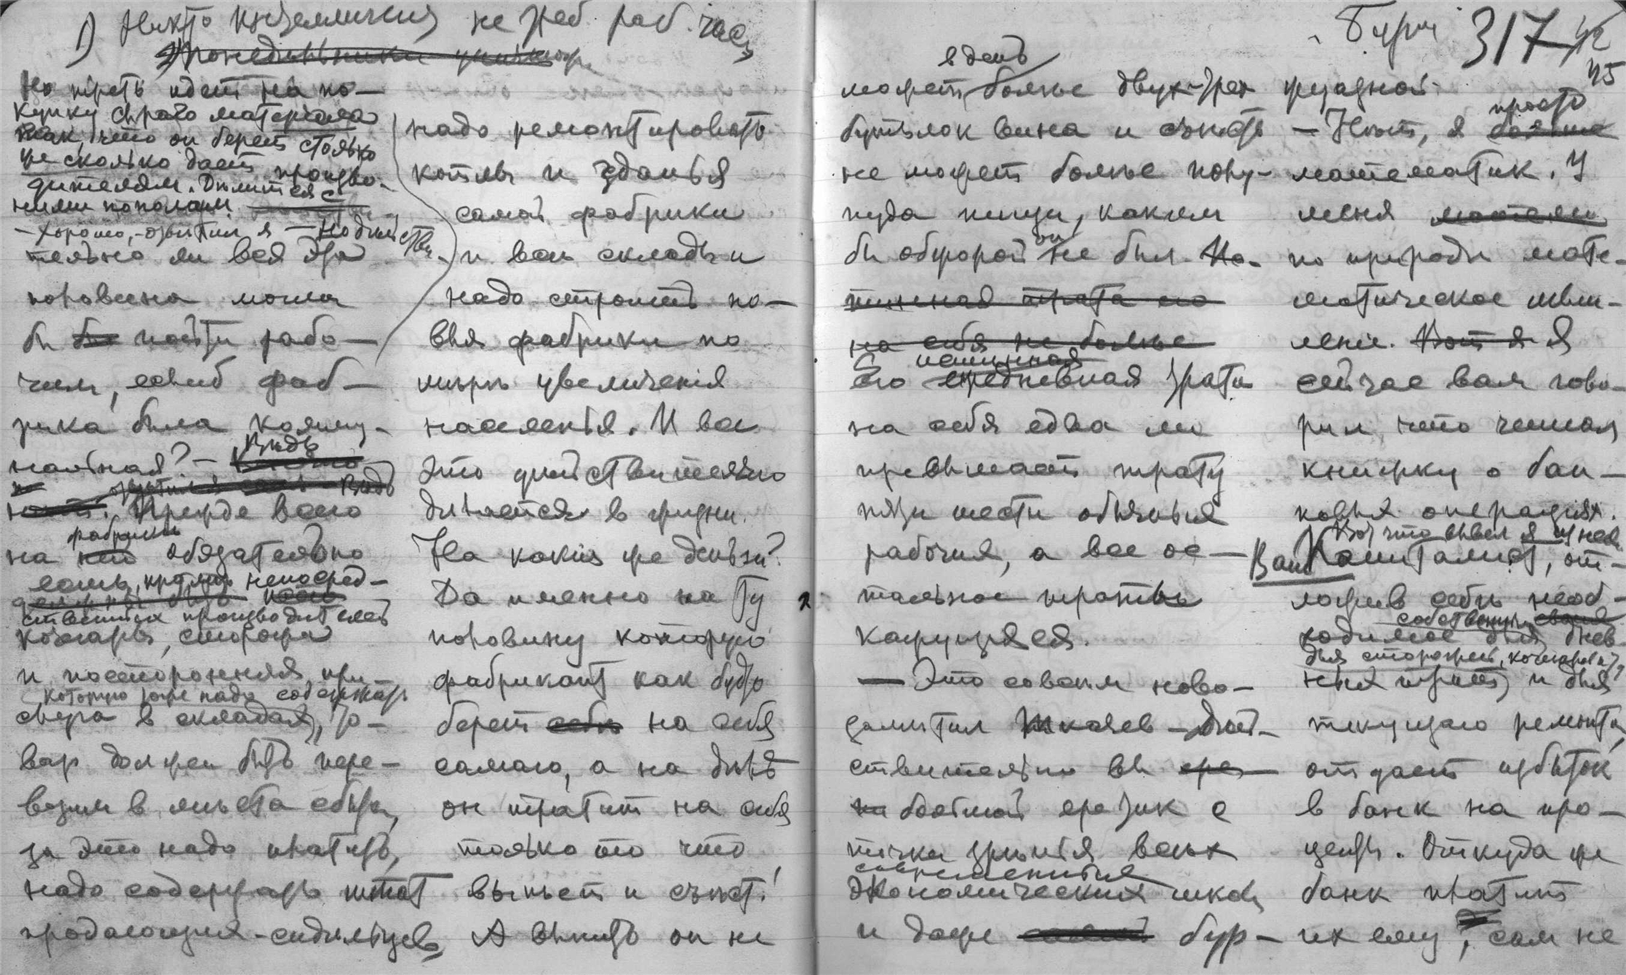 1) Никто не треб. раб. час
на треть идет на по-
купку сырого материала
так, что он берет столько
же сколько дает произво-
дителям. Делится с
ними пополам.
— Хорошо, — озвитил я —
тельно ли вся эта
половина могла
бы пойти рабо-
чим, если б фаб-
рика была комму-
нальная? — Видь
Прежде всего
на фабрике обязательно
есть, кроме непосред-
ственных производителей
кочегары, сторожа
и посторонняя при-
которую тоже надо содержать
в складах, то-
вар должен быть пере-
везен в места сбыта,
за это надо платить,
надо содержать штат
продающих-сидельцев,
надо ремонтировать
котлы и зданья
самой фабрики
и все склады и
надо строить но-
выя фабрики по
мере увеличенія
населенія. И все
это действительно
делается в жизни.
На какія же деньги?
Да именно на ту
половину которую
фабрикант как будто
берет на себя
самого, а на деле
он тратит на себя
только то что
выпьет и съест!
А выпить он не
317
45
в день
может больше двух-трех
бутылок вина и съесть
не может больше полу-
пуда пищи, каким
бы обжорой он не был.
Его истинная трата
на себя едва ли
превышает трату
пяти шести обычных
рабочих, а все ос-
тальное траты
кажущияся.
— Это совсем ново-
заметил Шкляев — дей-
ствительно вы
большой еретик с
точки зрѣнія всех
современных
экономических школ
и даже бур-
жуазной.
— Нет, я просто
математик. У
меня
по природе мате-
матическое мыш-
леніе. Я
сейчас вам гово-
рил, что читал
книжку о бан-
ковых операціях.
Вот что вывел я из нея
Ваш Капиталист, от-
ложив себе необ-
ходимое для
собственных
для сторожей, кочегаров и
и для
текущаго ремонта,
отдает избыток
в банк на про-
центы. Откуда же
банк платит
их ему, сам не